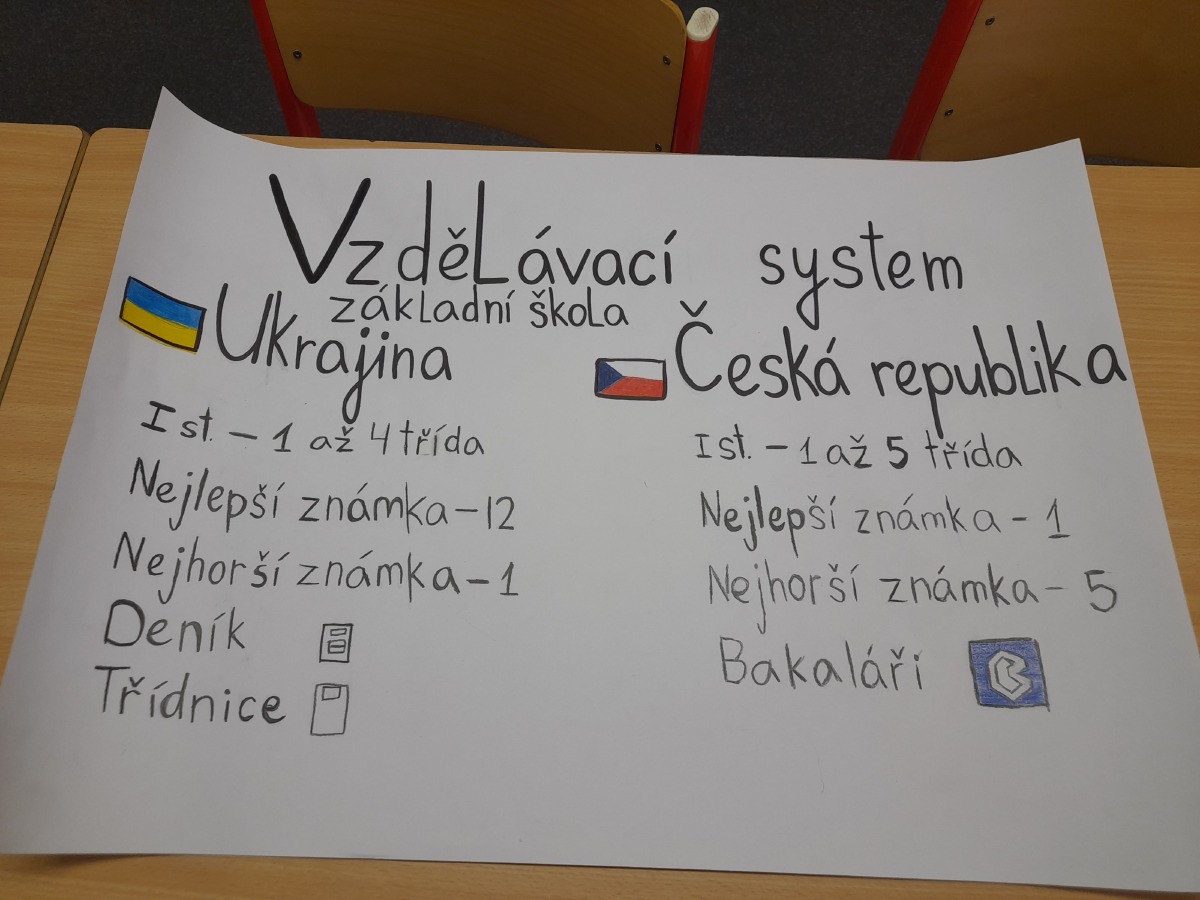 Vzdělávací system
základní škola
Ukrajina
I st. - 1 až 4 třída
Nejlepší známka - 12
Nejhorší známka - 1
Deník
Třídnice
Česká republika
I st. - 1 až 5 třída
Nejlepší známka - 1
Nejhorší známka - 5
Bakaláři
B